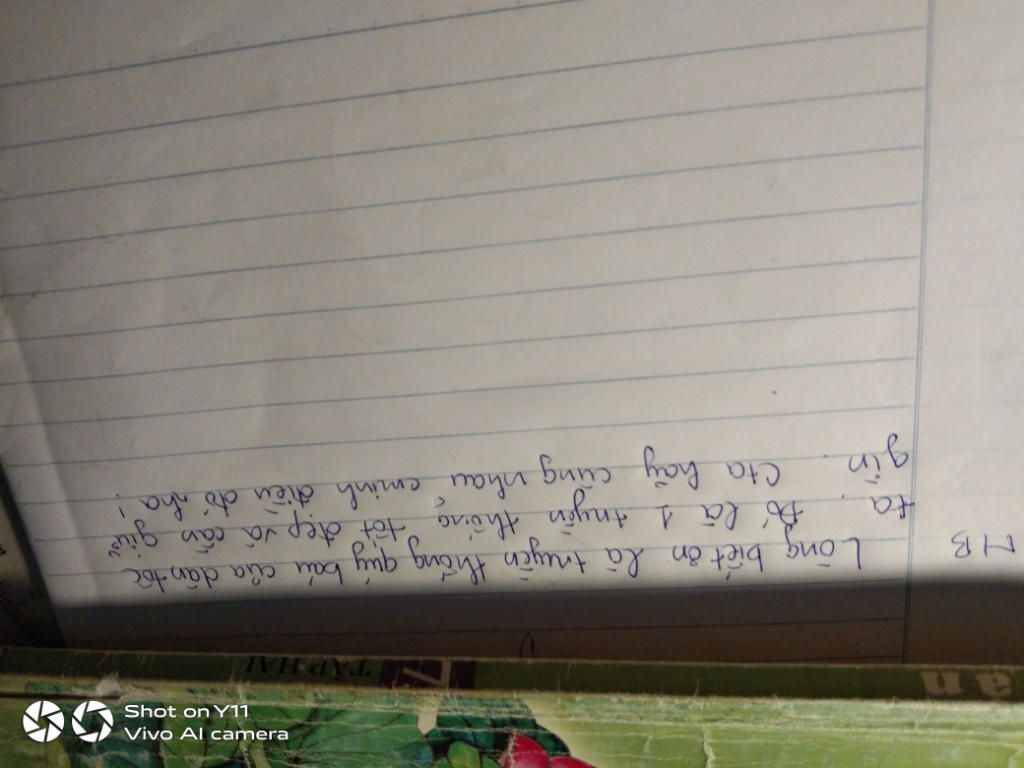 MB
Lòng biết ơn là truyền thống quý báu của dân tộc
ta. Đó là 1 truyền thống tốt đẹp và cần giữ
gìn. Cta hãy cùng nhau cminh điều đó nha!
ăn
7
TẬP HAI
Shot on Y11
Vivo AI camera